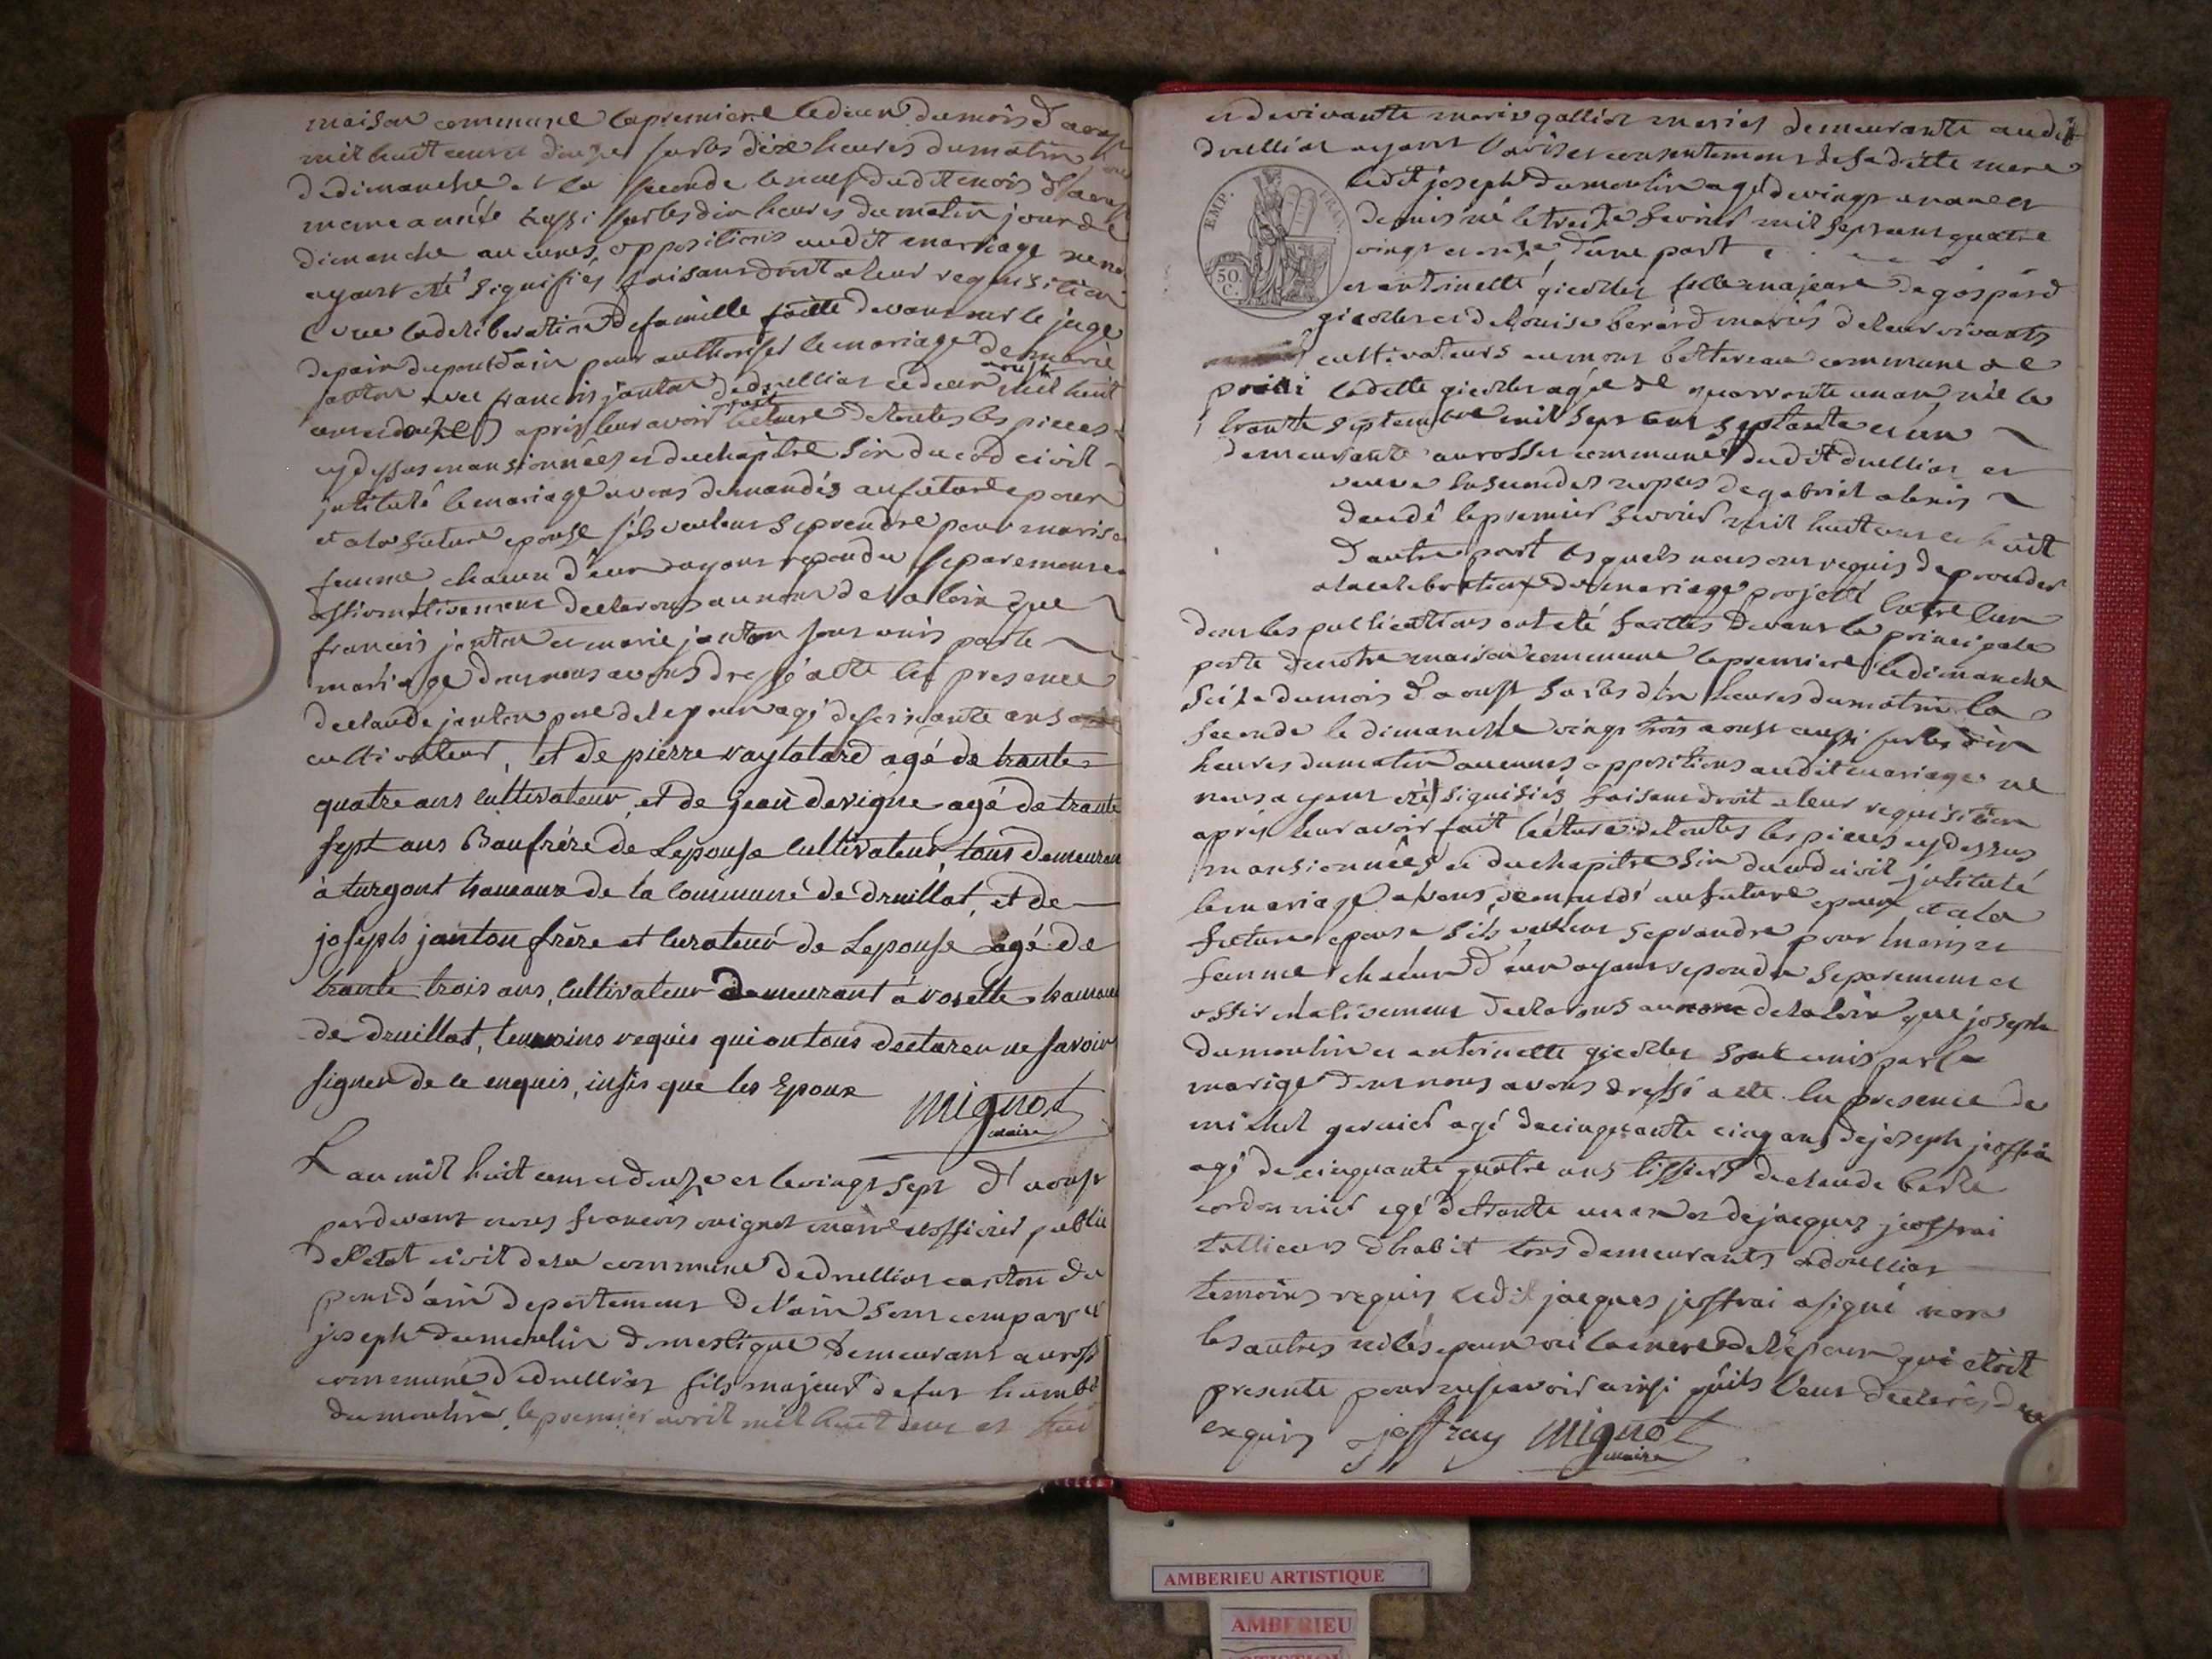 maison commune la premiere le deux du mois d'aoust
mil huit cent et douze sur les dixe heures du matin
de dimanche et la seconde le neuf du dit mois d'aoust
meme année aussi sur les dix heures du matin jour de
dimanche aucunes oppositions audit marriage ne nous
ayant été signifiés faisant droit a leur requisition
vue la deliberation de famille faitte devant mr le juge
de paix du pontdain pour authoriser le mariage de marie
janton avec francois janton de druelliat le deux aoust mil huit
cent douze apres leur avoir fait lecture de toutes les pieces
cy dessus mansionnées et du chapitre six du cod civil
intitulé le mariage avons demandés au future epoux
et a la future epouse s'ils veulent se prendre pour maris et
femme chacun d'eux ayant repondu separement et
affirmativement declarons au nom de la loix que
francois janton et marie janton sont unis par le
mariage dont nous avons dressé acte en presence
de claude janton pere de lepoux agé de soixante ans
cultivateur, et de pierre vaylatard agé de trante
quatre ans cultivateur, et de jean devigne agé de trante
sept ans Baufrére de Lepouse cultivateur, tous demeurant
à turgont hameaux de la commune de druillat, et de
joseph janton frére et curateur de Lepouse agé de
trante trois ans, cultivateur demeurant à rosette hameau
de druillat, temoins requis qui on tous declaren ne savoir
signer de ce enquis, insis que les Epoux
Mignot
maire
L'an mil huit cent et douze et le vingt sept d'aoust
pardevant nous francois mignot maire et officier public
de l'etat civil de la commune de druelliat canton du
pont d'ain departement de l'ain sont comparus
joseph dumoulin domestique demeurant au rosset
commune de druelliat fils majeur de fut humbert
dumoulin le premier avril mil huit cent et huit
et de vivante marie galliat mariés demeurante audit
druelliat ayant l'avis et consentement de sa ditte mere
ledit joseph dumoulin agé de vingt un an et
demis né le treize fevrier mil sept cent quatre
vingt et onze, d'une part
EMP. FRAN.
50 C.
et antoinette giecler fille majeure de gaspard
giecler et de louise berard mariés de leur vivants
cultivateurs au mont bettereau commune de
priai ladette giecler agée de quarrante un an, née le
trante septembre mil sept cent septante et un
demeurante au rosset commune dudit druelliat et
veuve en secondes nopces de gabriel alexis
decedé le premier fevrier mil huit cent et huit
d'autre part lesquels nous ont requis de proceder
a la celebration du mariage projetté entre eux
dont les publications ont eté faittes devant la principale
porte de notre maison commune la premiere le dimanche
seize du mois d'aoust sur les dix heures du matin la
seconde le dimanche vingt trois aoust aussi sur les dix
heures du matin aucunes oppositions audit mariage ne
nous ayant eté signifiés faisant droit a leur requisition
apres leur avoir fait lecture de toutes les pieces cy dessus
mansionnées et du chapitre six du cod civil intitulé
le mariage avons demandé au future epoux et a la
future epouse s'ils veullent se prandre pour maris et
femme chacun d'eux ayant repondu separement et
affirmativement declarons au nom de la loix que joseph
dumoulin et antoinette giecler sont unis par le
marige dont nous avons dressé acte en presence de
michel garnier agé de cinquante cinq ans de joseph jeoffrai
agé de cinquante quatre ans tissiers de claude barle
cordonnier agé de trante un an et de jacques jeoffrai
tallieurs d'habit tous demeurants a druelliat
temoins requis ledit jacques jeoffrai a signé non
les autres ni les epoux ni la mere de l'epoux qui etoit
presente pour ne scavoir ainsi qu'ils l'ont declarés de
enquis joffray Mignot
maire
AMBERIEU ARTISTIQUE
AMBERIEU
ARTISTIQUE